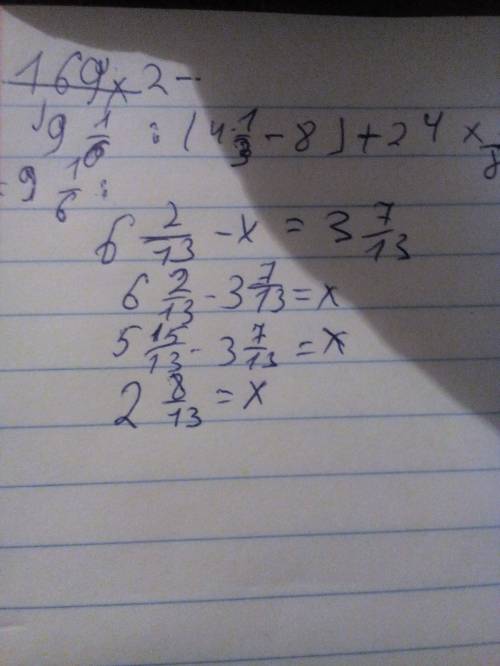 169 x 2 -
9 1/6 : (4 1/3 - 8) + 2 4 x
9 1/6 :
6 2/13 - x = 3 7/13
6 2/13 - 3 7/13 = x
5 15/13 - 3 7/13 = x
2 8/13 = x